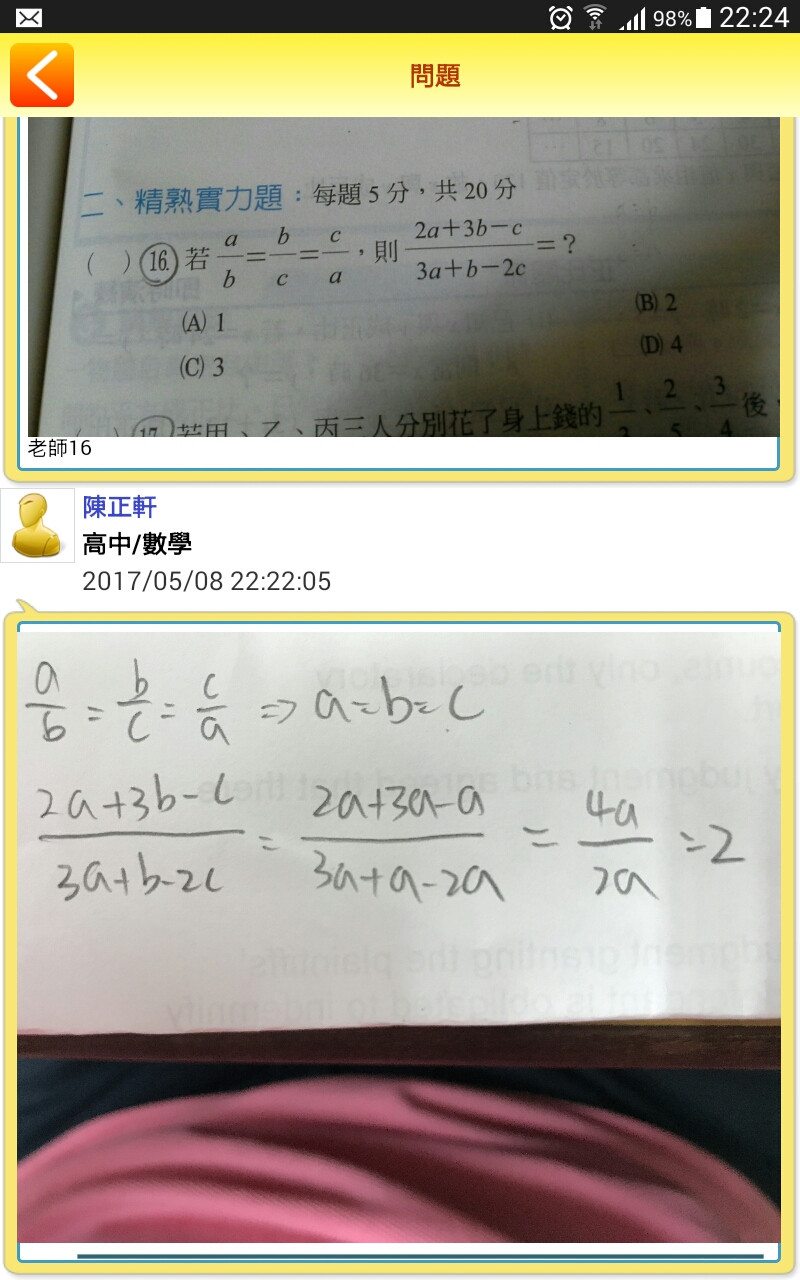 98% 22:24
問題
二、精熟實力題：每題 5 分，共 20 分
( ) 16. 若 a/b = b/c = c/a ，則 2a+3b-c / 3a+b-2c = ?
(A) 1 (B) 2
(C) 3 (D) 4
( ) 17. 若甲、乙、丙三人分別花了身上錢的 1/3、2/5、3/4 後，
老師16
陳正軒
高中/數學
2017/05/08 22:22:05
a/b = b/c = c/a => a=b=c
2a+3b-c / 3a+b-2c = 2a+3a-a / 3a+a-2a = 4a/2a = 2